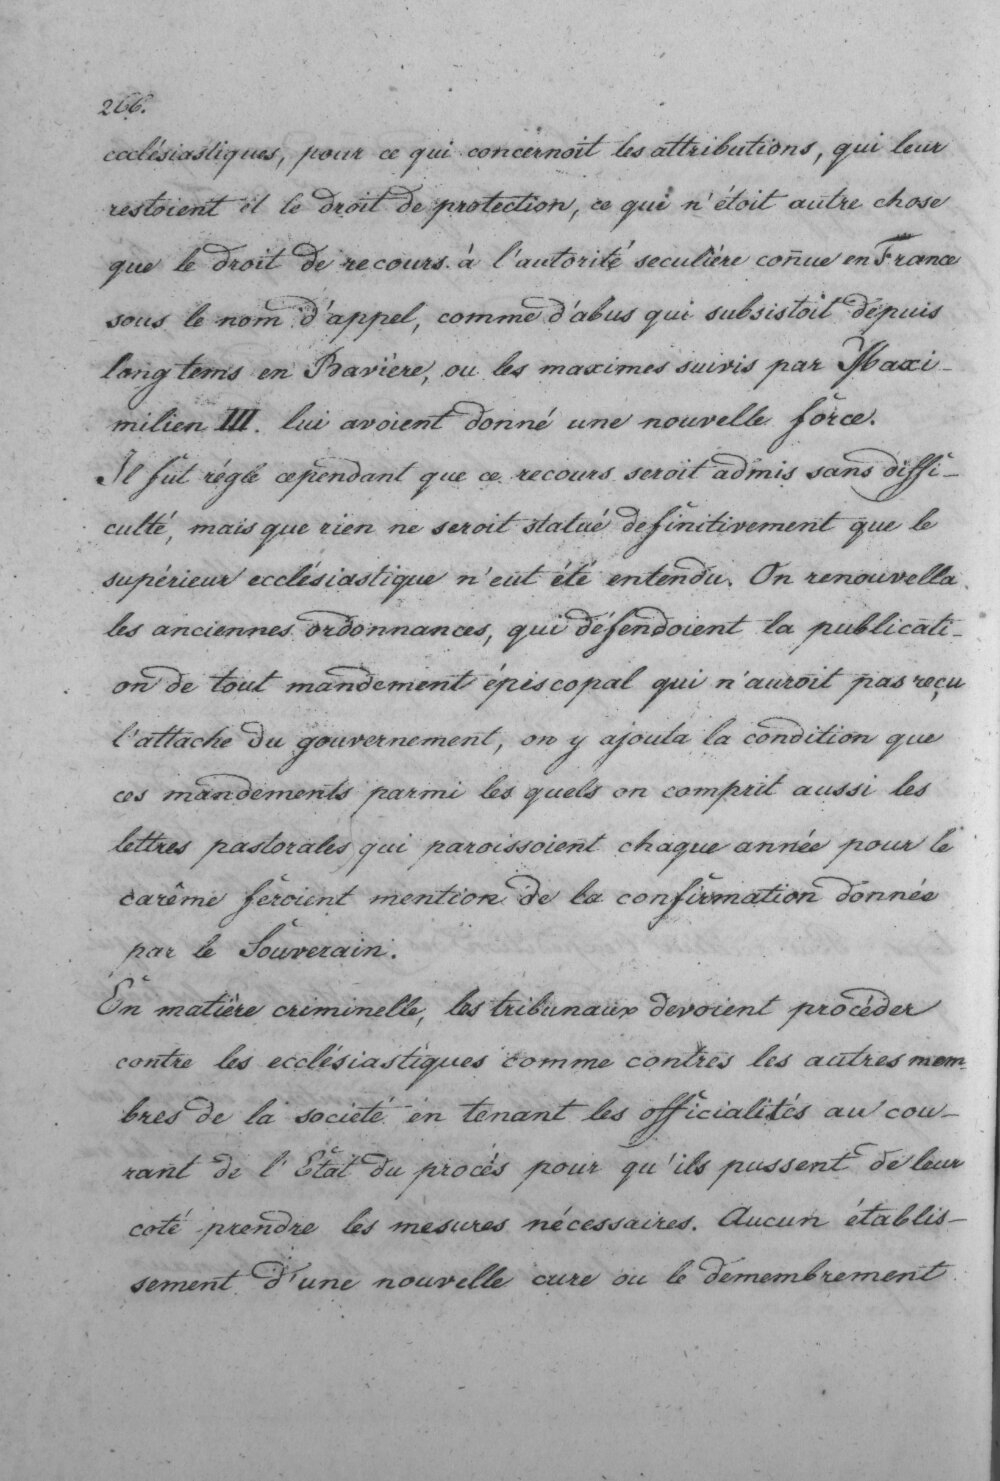 266.
ecclésiastiques, pour ce qui concernoit les attributions, qui leur
restoient et le droit de protection, ce qui n'étoit autre chose
que le droit de recours à l'autorité seculière con̄ue en France
sous le nom d'appel, comme d'abus qui subsistoit depuis
long tems en Bavière, ou les maximes suivis par Maxi-
milien III. lui avoient donné une nouvelle force.
Il fut réglé cependant que ce recours seroit admis sans diffi-
culté, mais que rien ne seroit statué definitivement que le
supérieur ecclésiastique n'eut été entendu. On renouvella
les anciennes ordonnances, qui défendoient la publicati-
on de tout mandement épiscopal qui n'auroit pas reçu
l'attache du gouvernement, on y ajouta la condition que
ces mandements parmi les quels on comprit aussi les
lettres pastorales qui paroissoient chaque année pour le
carême feroient mention de la confirmation donnée
par le Souverain.
En matière criminelle, les tribunaux devoient procéder
contre les ecclésiastiques comme contres les autres mem-
bres de la societé en tenant les officialités au cou-
rant de l'Etat du procès pour qu'ils pussent de leur
coté prendre les mesures nécessaires. Aucun établis-
sement d'une nouvelle cure ou le demembrement